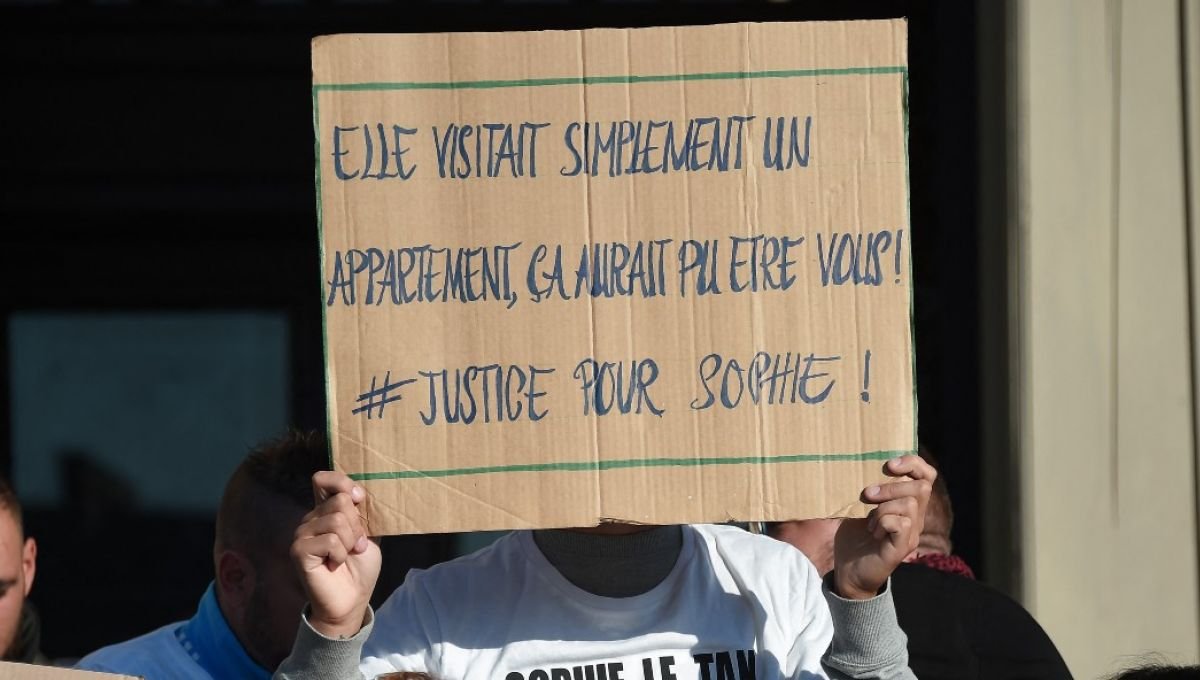 ELLE VISITAIT SIMPLEMENT UN
APPARTEMENT, ÇA AURAIT PU ETRE VOUS!
# JUSTICE POUR SOPHIE !
SOPHIE LE TAN